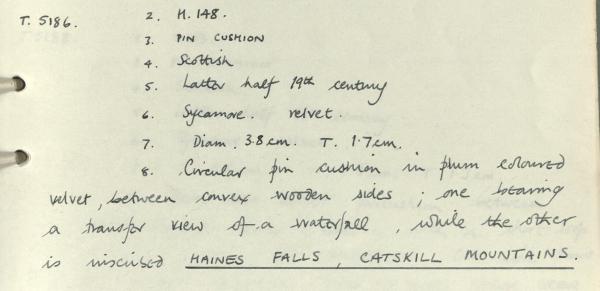 T. 5186. 2. H. 148.
3. PIN CUSHION
4. Scottish
5. Latter half 19th century
6. Sycamore. velvet.
7. Diam. 3.8cm. T. 1.7cm.
8. Circular pin cushion in plum coloured
velvet, between convex wooden sides; one bearing
a transfer view of a waterfall, while the other
is inscribed HAINES FALLS, CATSKILL MOUNTAINS.